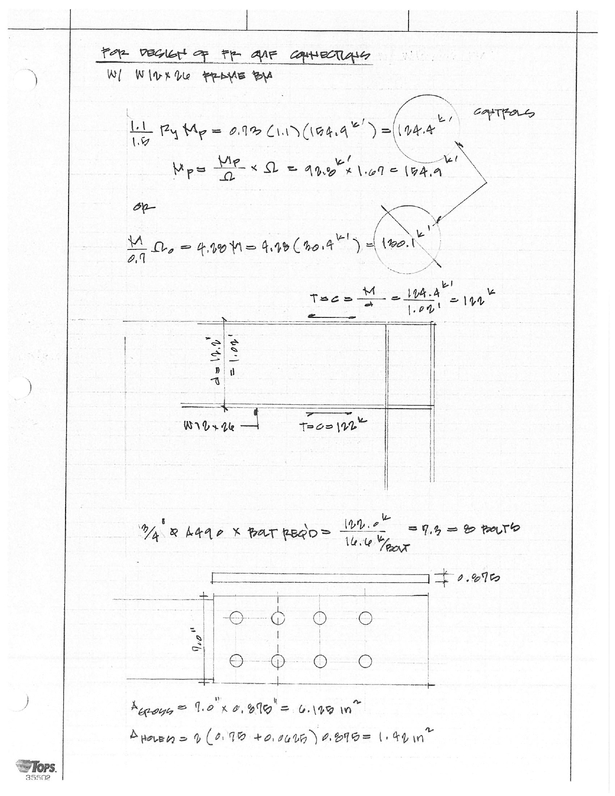 FOR DESIGN OF FR OMF CONNECTIONS
W/ W12 × 26 FRAME BM
1.1/1.5 Ry Mp = 0.73 (1.1) (154.9 k') = 124.4 k' CONTROLS
Mp = Mp/Ω × Ω = 92.8 k' × 1.67 = 154.9 k'
OR
M/0.7 Ω₀ = 4.28 M = 4.28 (30.4 k') = 130.1 k'
T = C = M/d = 124.4 k'/1.02' = 122 k
d = 12.2" = 1.02'
W12 × 26
T = C = 122 k
3/4" Φ A490 × BOLT REQ'D = 122.0 k/16.6 k/BOLT = 7.3 = 8 BOLTS
0.875
7.0"
A GROSS = 7.0" × 0.875" = 6.125 in²
A HOLES = 2 (0.75 + 0.0625) 0.875 = 1.42 in²
TOPS
35502